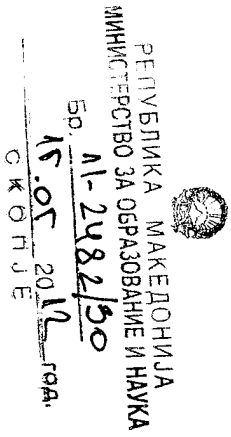 РЕПУБЛИКА МАКЕДОНИЈА
МИНИСТЕРСТВО ЗА ОБРАЗОВАНИЕ И НАУКА
Бр. 11-2482/90
15.05 2012 год.
СКОПЈЕ